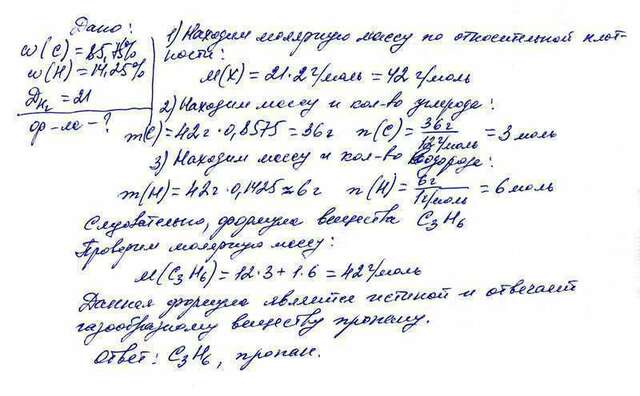 Дано:
w(C) = 85,75%
w(H) = 14,25%
D H₂ = 21
ф-ла - ?
1) Находим молярную массу по относительной плот-
ности:
M(X) = 21·2 г/моль = 42 г/моль
2) Находим массу и кол-во углерода:
m(C) = 42г·0,8575 = 36г n(C) = 36г / 12г/моль = 3 моль
3) Находим массу и кол-во водорода:
m(H) = 42г·0,1425 ≈ 6г n(H) = 6г / 1г/моль = 6 моль
Следовательно, формула вещества C₃H₆
Проверим молярную массу:
M(C₃H₆) = 12·3 + 1·6 = 42 г/моль
Данная формула является истиной и отвечает
газообразному веществу пропену.
Ответ: C₃H₆, пропан.